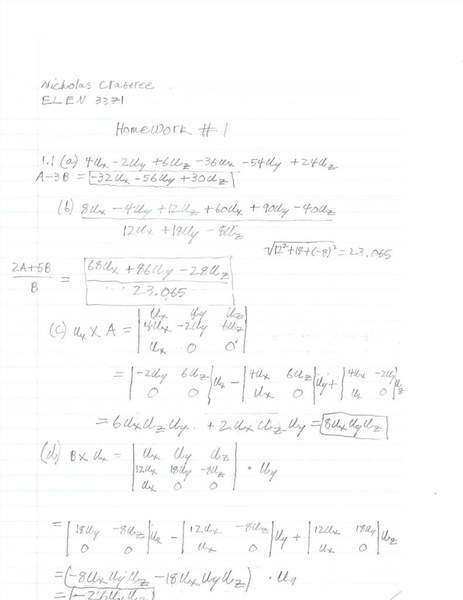 Nicholas Crabtree
ELEN 3371
Homework #1
1.1 (a) 4Ux - 2Uy + 6Uz - 36Ux - 54Uy + 24Uz
A-3B = -32Ux - 56Uy + 30Uz
(b) 8Ux - 4Uy + 12Uz + 60Ux + 90Uy - 40Uz
12Ux + 18Uy - 8Uz
√12²+18+(-8)² = 23.065
2A+5B / B = 68Ux + 86Uy - 28Uz
23.065
Ux Uy Uz
(c) Ux X A = 4Ux -2Uy 6Uz
Ux 0 0
= | -2Uy 6Uz | Ux - | 4Ux 6Uz | Uy + | 4Ux -2Uy | Uz
0 0 Ux 0 Ux 0
= 6UxUzUy + 2UxUzUy = 8UxUyUz
(d) B x Ux = Ux Uy Uz
12Ux 18Uy -8Uz · Uy
Ux 0 0
= | 18Uy -8Uz | Ux - | 12Ux -8Uz | Uy + | 12Ux 18Uy | Uz
0 0 Ux 0 Ux 0
= (-8UxUyUz - 18UxUyUz) · Uy